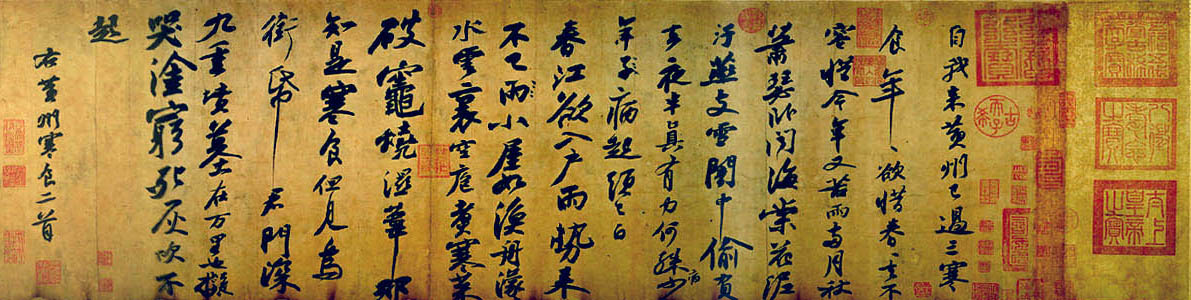 自我来黄州已過三寒
食年〻欲惜春〻去不
容惜今年又苦雨兩月秋
蕭瑟卧聞海棠花泥
汙燕支雪闇中偷負
去夜半真有力何殊少
病
年子病起頭已白
春江欲入户雨勢来
不已雨小屋如漁舟濛〻
水雲裏空庖煮寒菜
破竈燒濕葦那
知是寒食但見烏
銜帋君門深
九重墳墓在万里也擬
哭塗窮死灰吹不
起
右黄州寒食二首
古希天子
八徵耄念之寶
太上皇帝之寶